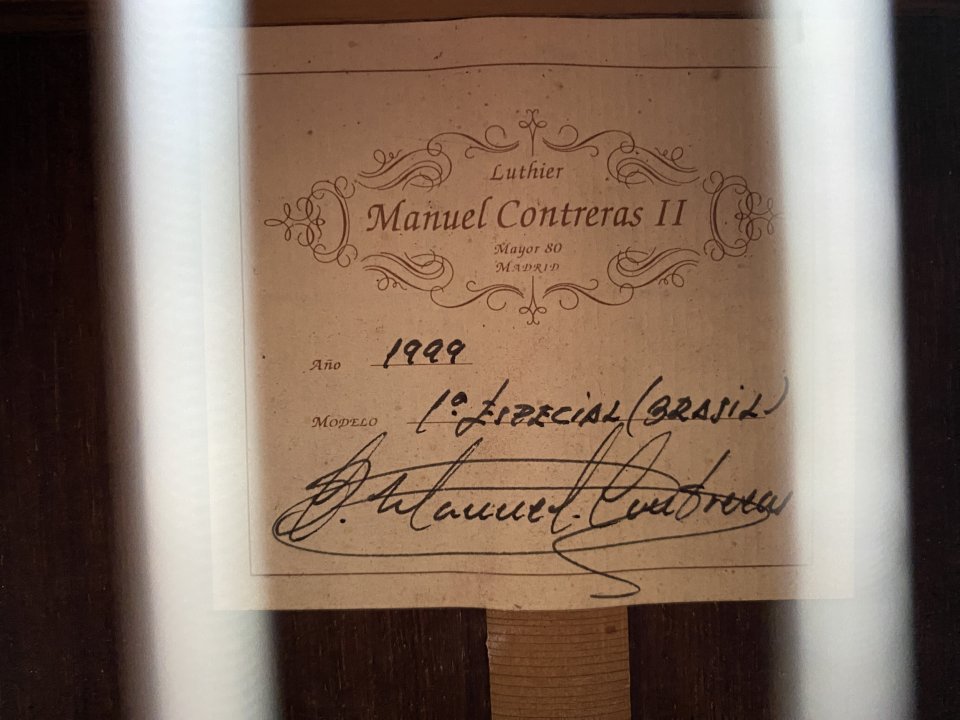 Luthier
Manuel Contreras II
Mayor 80
MADRID
Año 1999
MODELO 1ª ESPECIAL (BRASIL)
P. Manuel. Contreras